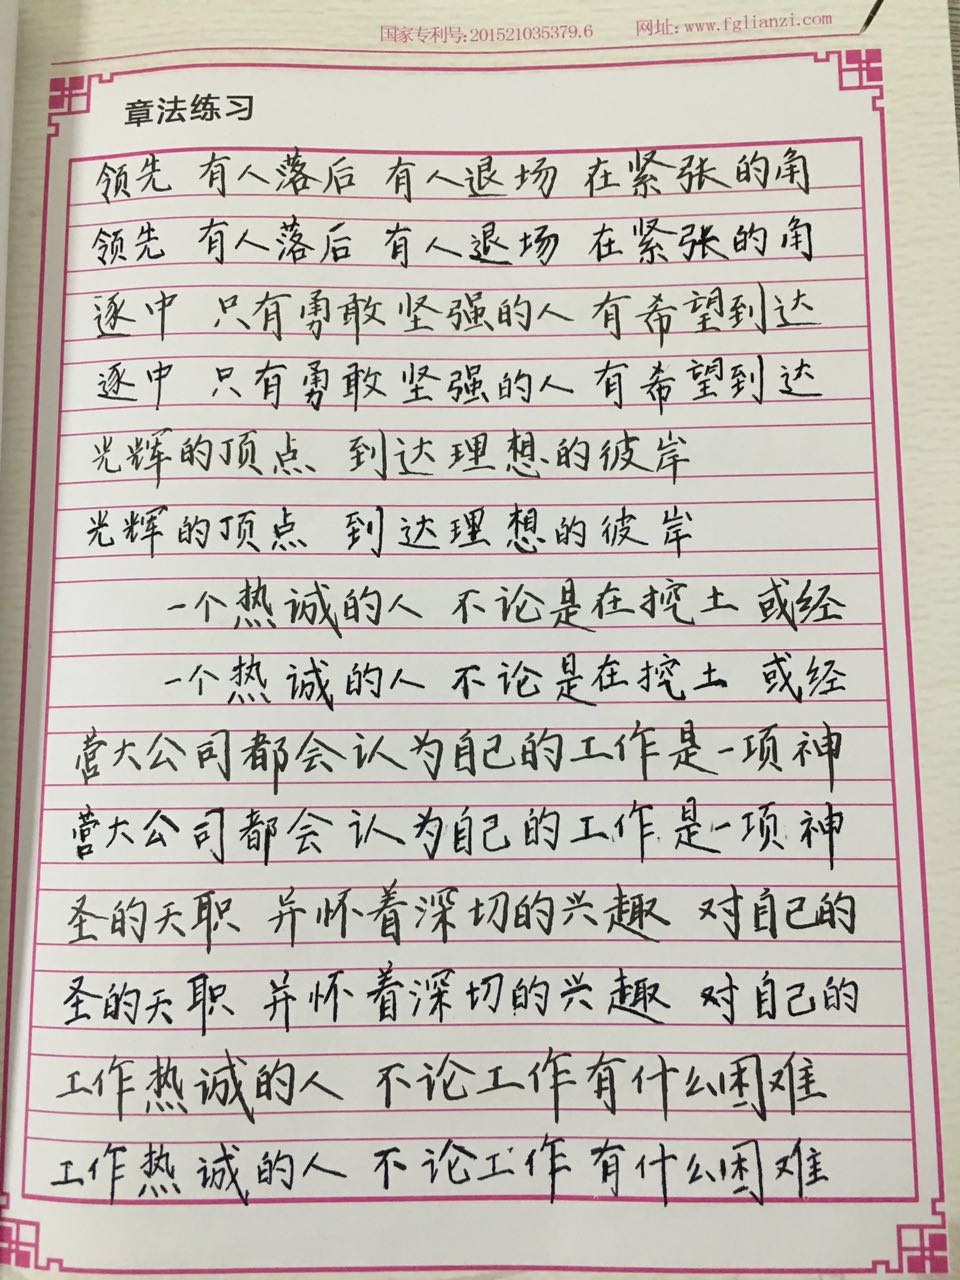 国家专利号:201521035379.6 网址:www.fglianzi.com
章法练习
领先 有人落后 有人退场 在紧张的角
领先 有人落后 有人退场 在紧张的角
逐中 只有勇敢坚强的人 有希望到达
逐中 只有勇敢坚强的人 有希望到达
光辉的顶点 到达理想的彼岸
光辉的顶点 到达理想的彼岸
一个热诚的人 不论是在挖土 或经
一个热诚的人 不论是在挖土 或经
营大公司都会认为自己的工作是一项神
营大公司都会认为自己的工作是一项神
圣的天职 并怀着深切的兴趣 对自己的
圣的天职 并怀着深切的兴趣 对自己的
工作热诚的人 不论工作有什么困难
工作热诚的人 不论工作有什么困难